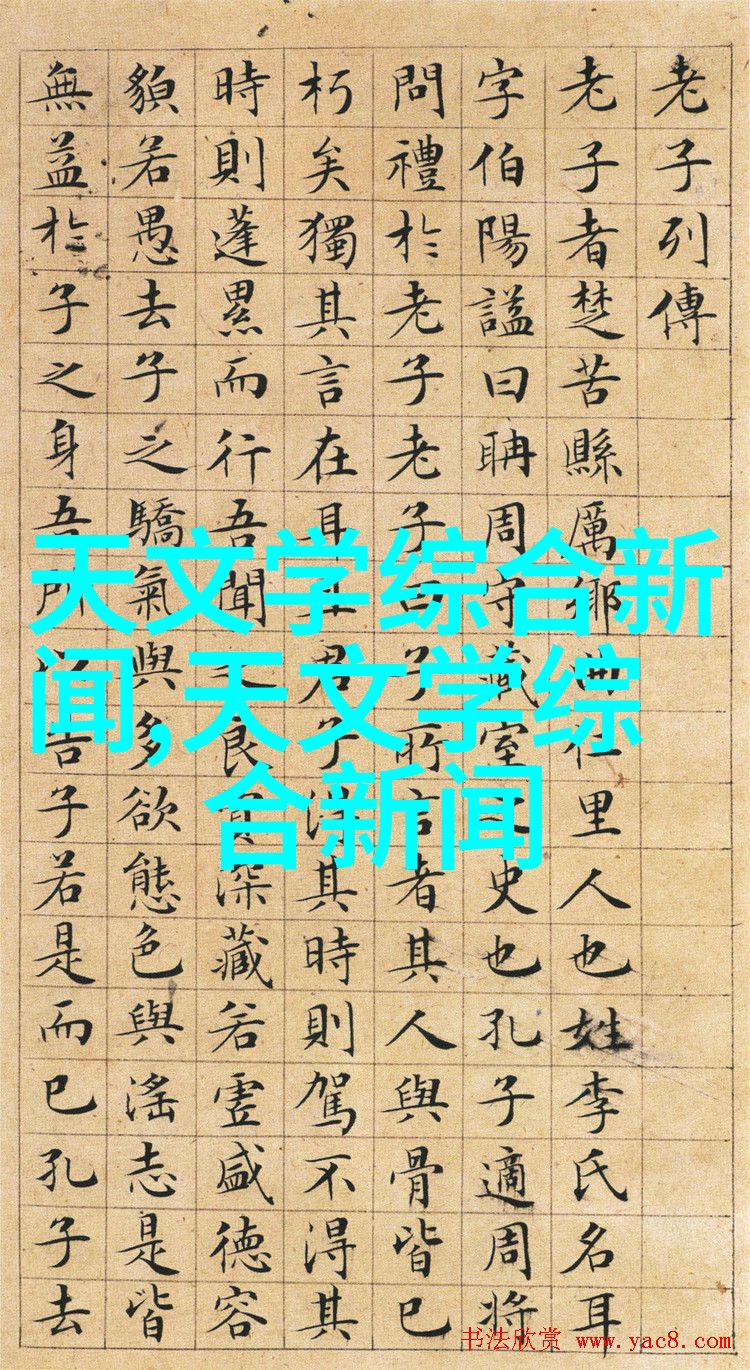 老子列傳
老子者楚苦縣厲鄉曲仁里人也姓李氏名耳
字伯陽謚曰聃周守藏室之史也孔子適周將
問禮於老子老子曰子所言者其人與骨皆已
朽矣獨其言在耳且君子得其時則駕不得其
時則蓬累而行吾聞之良賈深藏若虛盛德容
䫉若愚去子之驕氣與多欲態色與淫志是皆
無益於子之身吾所告子若是而已孔子去
天文学综合新
闻,天文学综
合新闻
书法欣赏 www.yac8.com